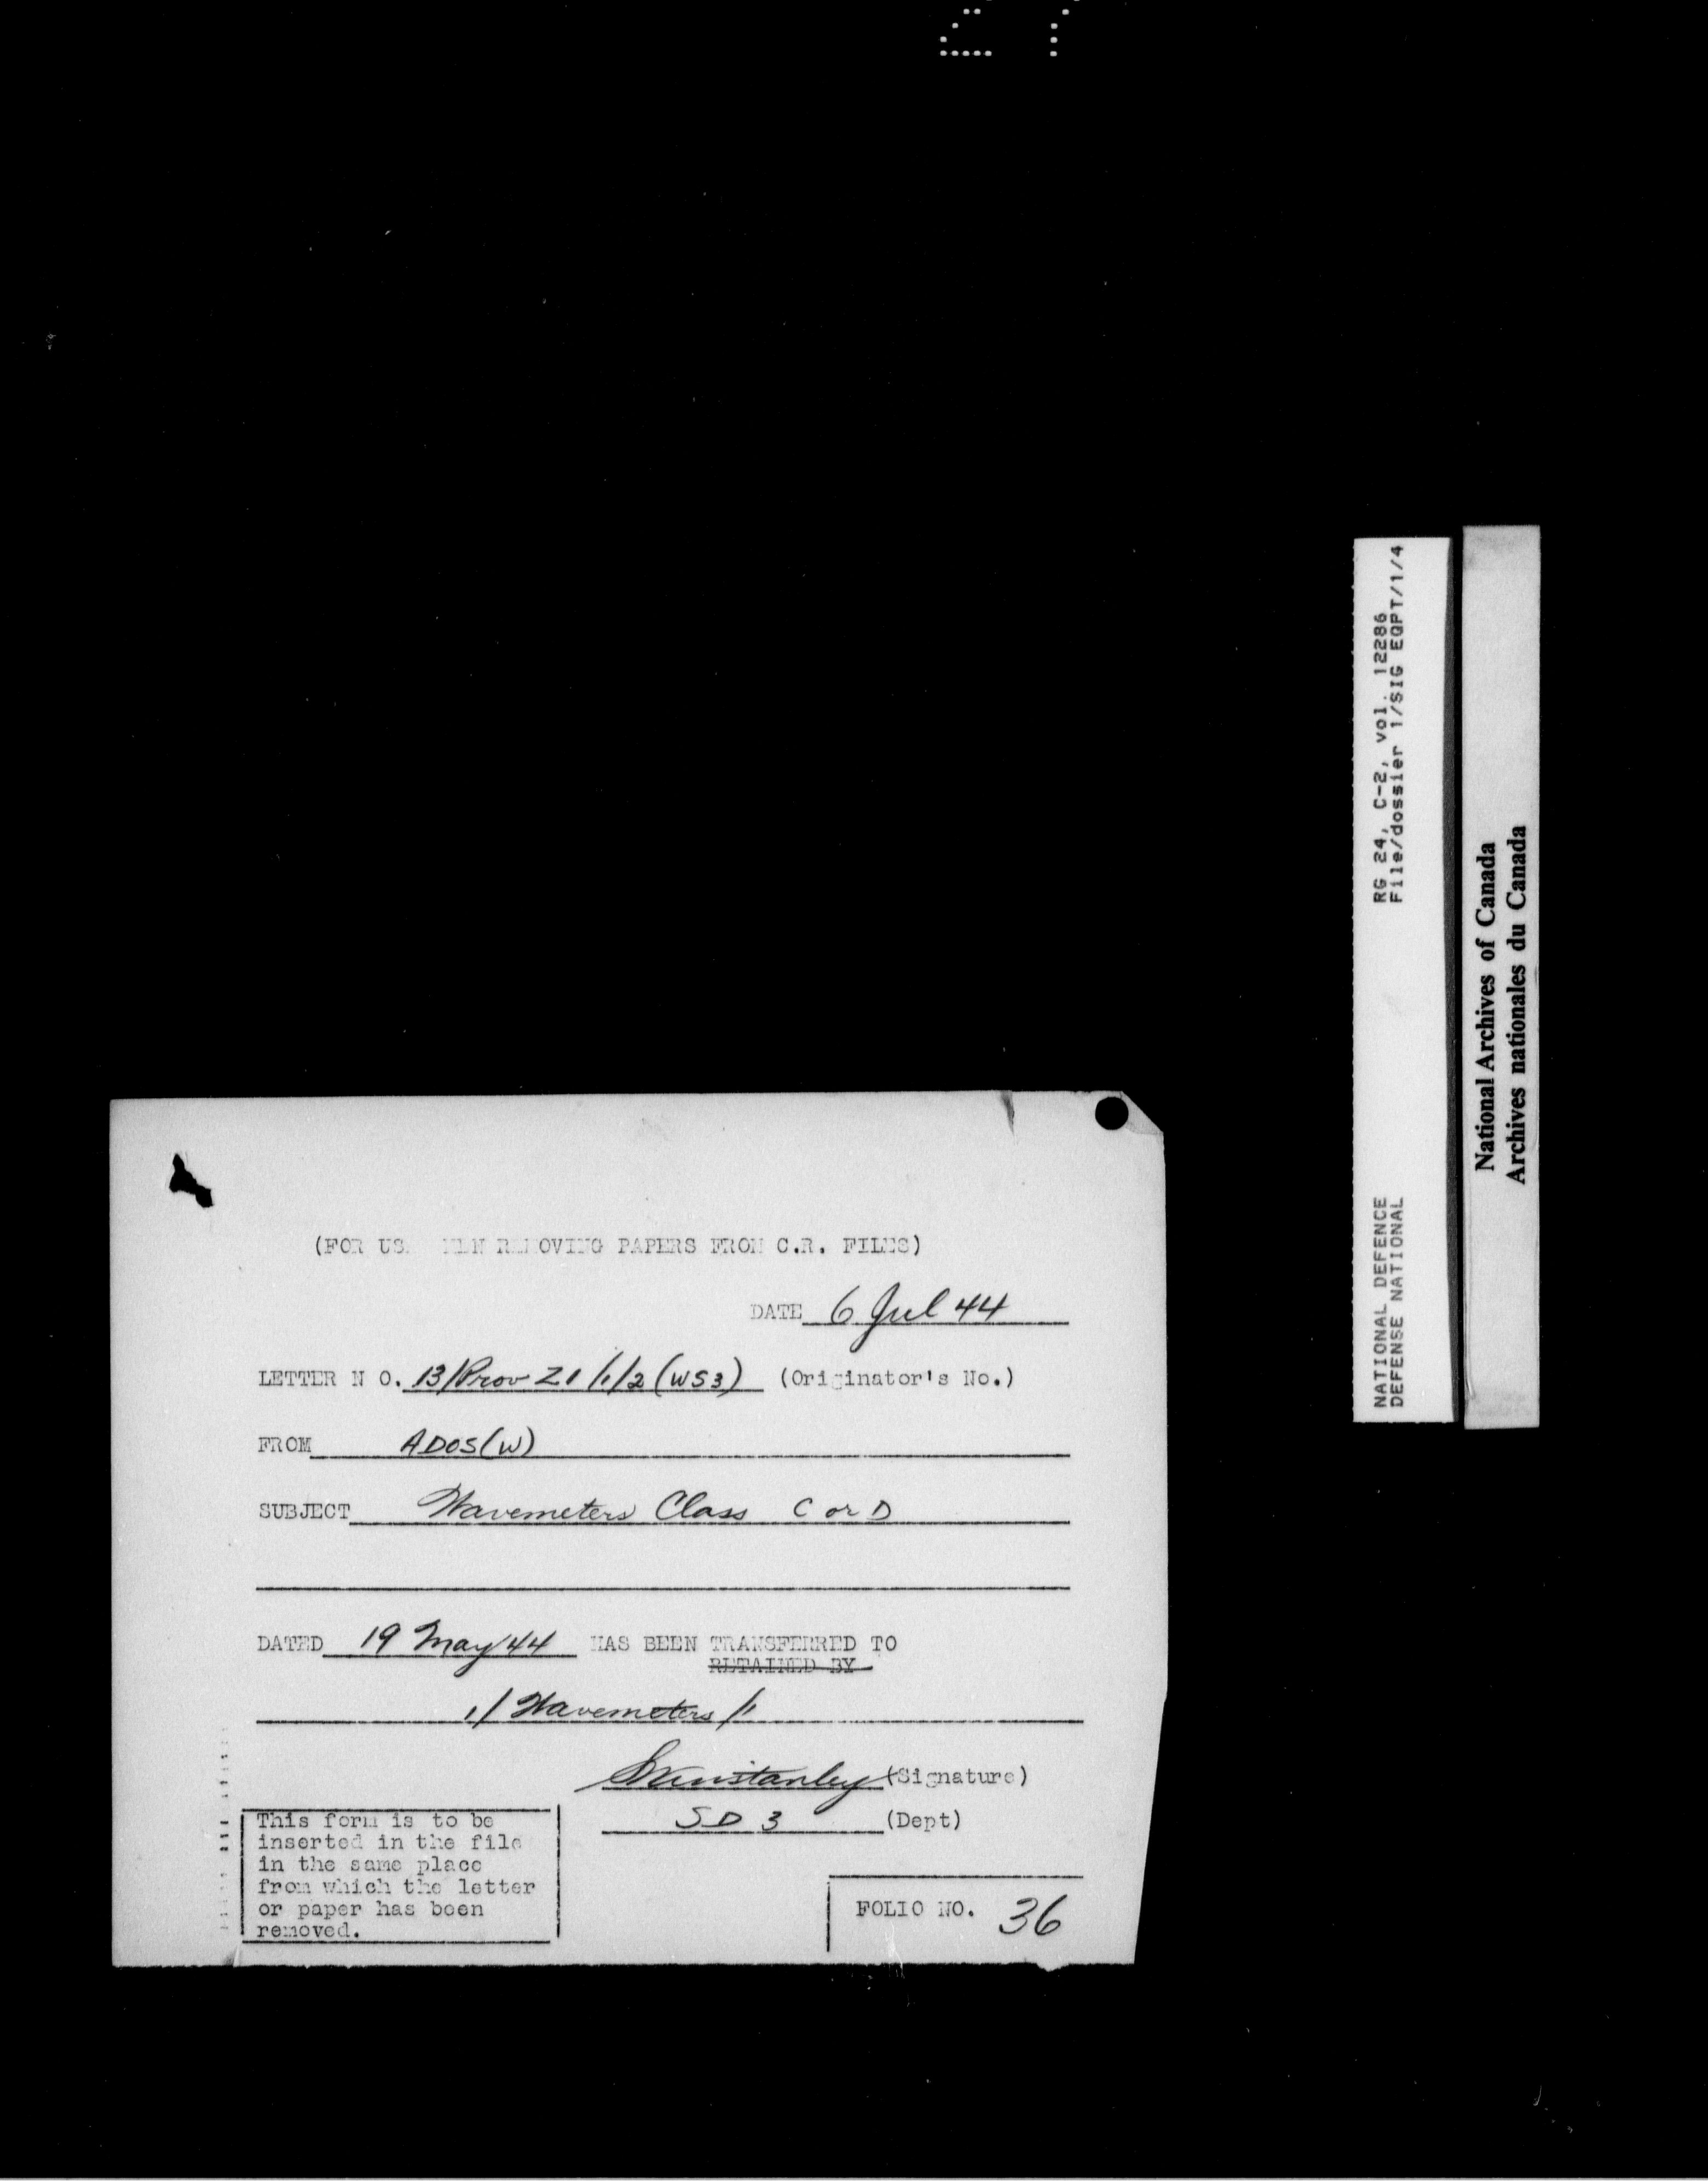 27
(FOR US   EN REMOVING PAPERS FROM C.R. FILES)
DATE 6 Jul 44
LETTER N O. 13/Prov Z1/1/2 (WS3) (Originator's No.)
FROM ADOS(W)
SUBJECT Wavemeters Class C or D
DATED 19 May 44 HAS BEEN TRANSFERRED TO
RETAINED BY
1/Wavemeters/1
(Signature)
SD 3 (Dept)
This form is to be
inserted in the file
in the same place
from which the letter
or paper has been
removed.
FOLIO NO. 36
NATIONAL DEFENCE RG 24, C-2, vol. 12286
DEFENSE NATIONAL File/dossier 1/SIG EQPT/1/4
National Archives of Canada
Archives nationales du Canada